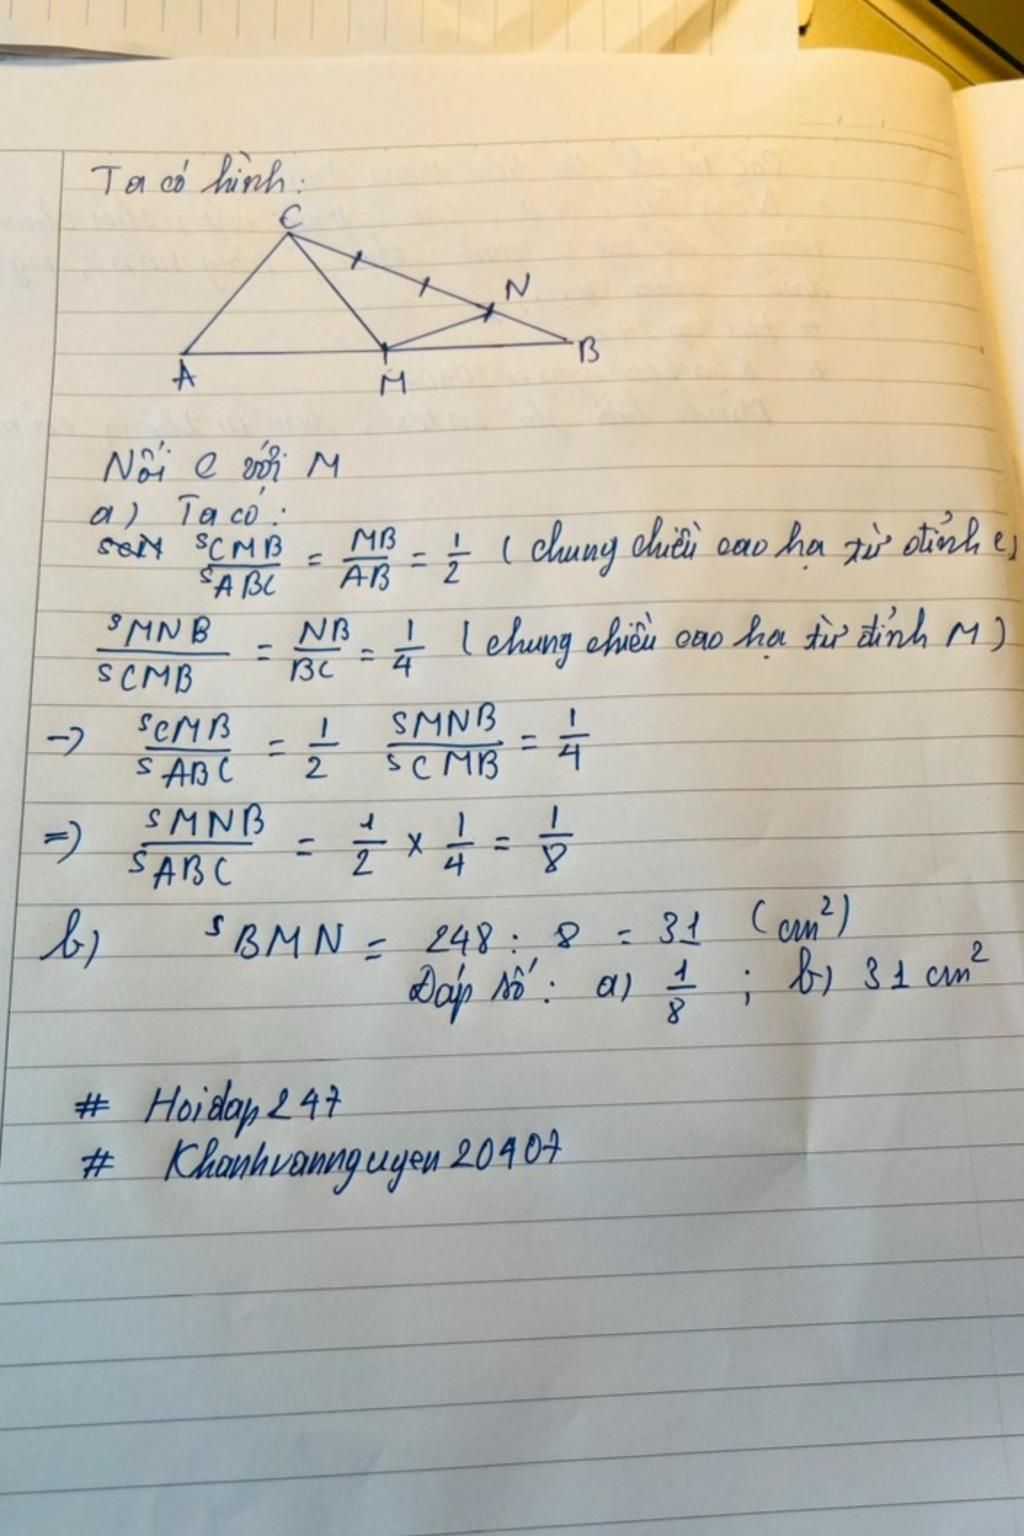 Ta có hình:
C
N
A
M
B
Nối C với M
a) Ta có:
SCMB/SABC = MB/AB = 1/2 (chung chiều cao hạ từ đỉnh C)
SMNB/SCMB = NB/BC = 1/4 (chung chiều cao hạ từ đỉnh M)
-> SCMB/SABC = 1/2 SMNB/SCMB = 1/4
=> SMNB/SABC = 1/2 x 1/4 = 1/8
b) SBMN = 248 : 8 = 31 (cm²)
Đáp số: a) 1/8 ; b) 31 cm²
# Hoidap247
# Khanhvannguyen20907